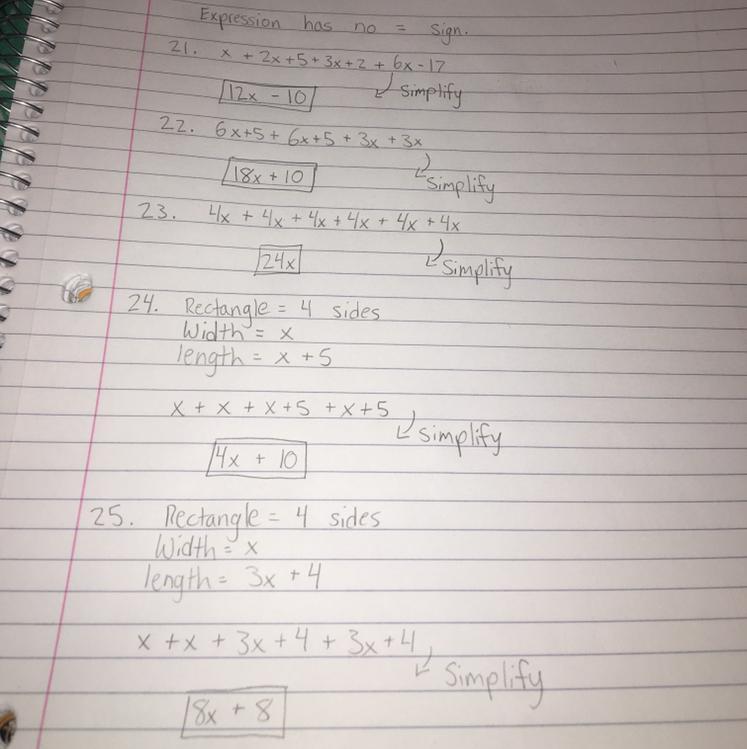 Expression has no = sign.
21. x + 2x+5+3x+2 + 6x-17
12x - 10
Simplify
22. 6x+5+ 6x+5 + 3x +3x
18x + 10
Simplify
23. 4x + 4x + 4x + 4x + 4x + 4x
24x
Simplify
24. Rectangle = 4 sides
Width = x
length = x + 5
x + x + x+5 + x+5
Simplify
4x + 10
25. Rectangle = 4 sides
Width = x
length = 3x + 4
x + x + 3x + 4 + 3x+4
Simplify
8x + 8